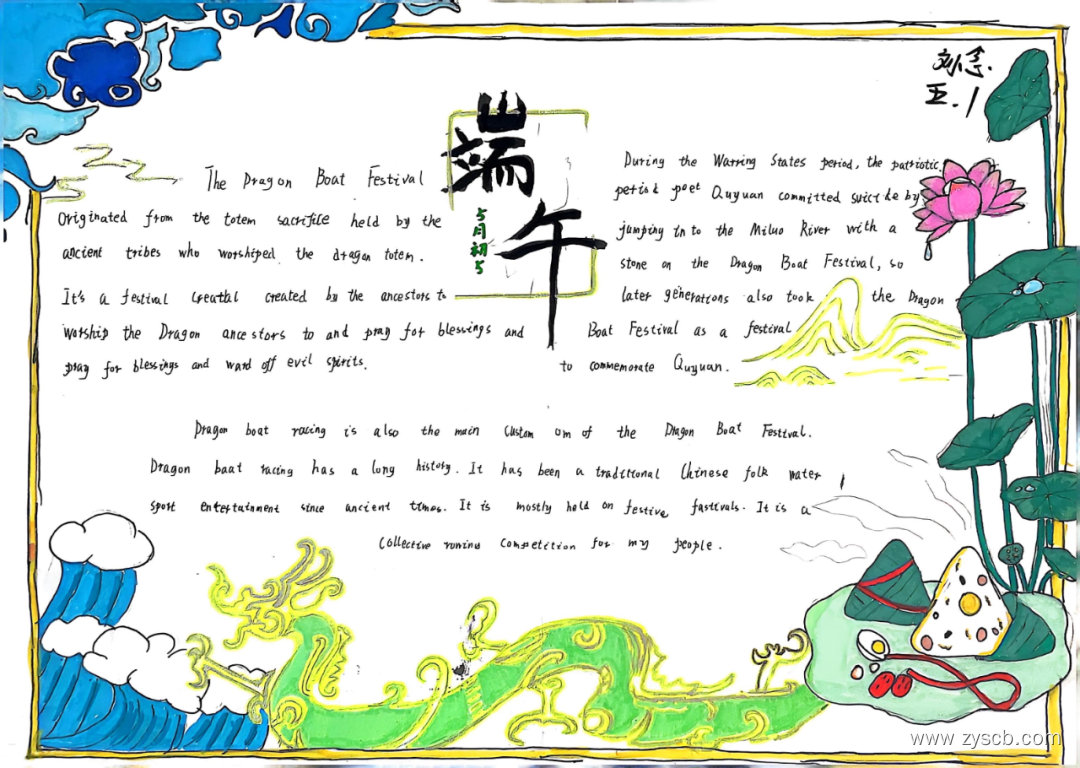 刘念.
五.1
端午
5月初5
The Dragon Boat Festival
Originated from the totem sacrifice held by the
ancient tribes who worshiped the dragon totem.
It's a festival created by the ancestors to
worship the Dragon ancestors to and pray for blessings and
pray for blessings and ward off evil spirits.
During the Warring States period, the patriotic
period poet Quyuan committed suicide by
jumping into the Miluo River with a
stone on the Dragon Boat Festival, so
later generations also took the Dragon
Boat Festival as a festival
to commemorate Quyuan.
Dragon boat racing is also the main custom om of the Dragon Boat Festival.
Dragon baat racing has a long history. It has been a traditional Chinese folk water
sport entertainment since ancient times. It is mostly held on festive fastivals. It is a
collective rowing competition for my people.
www.zyscb.com